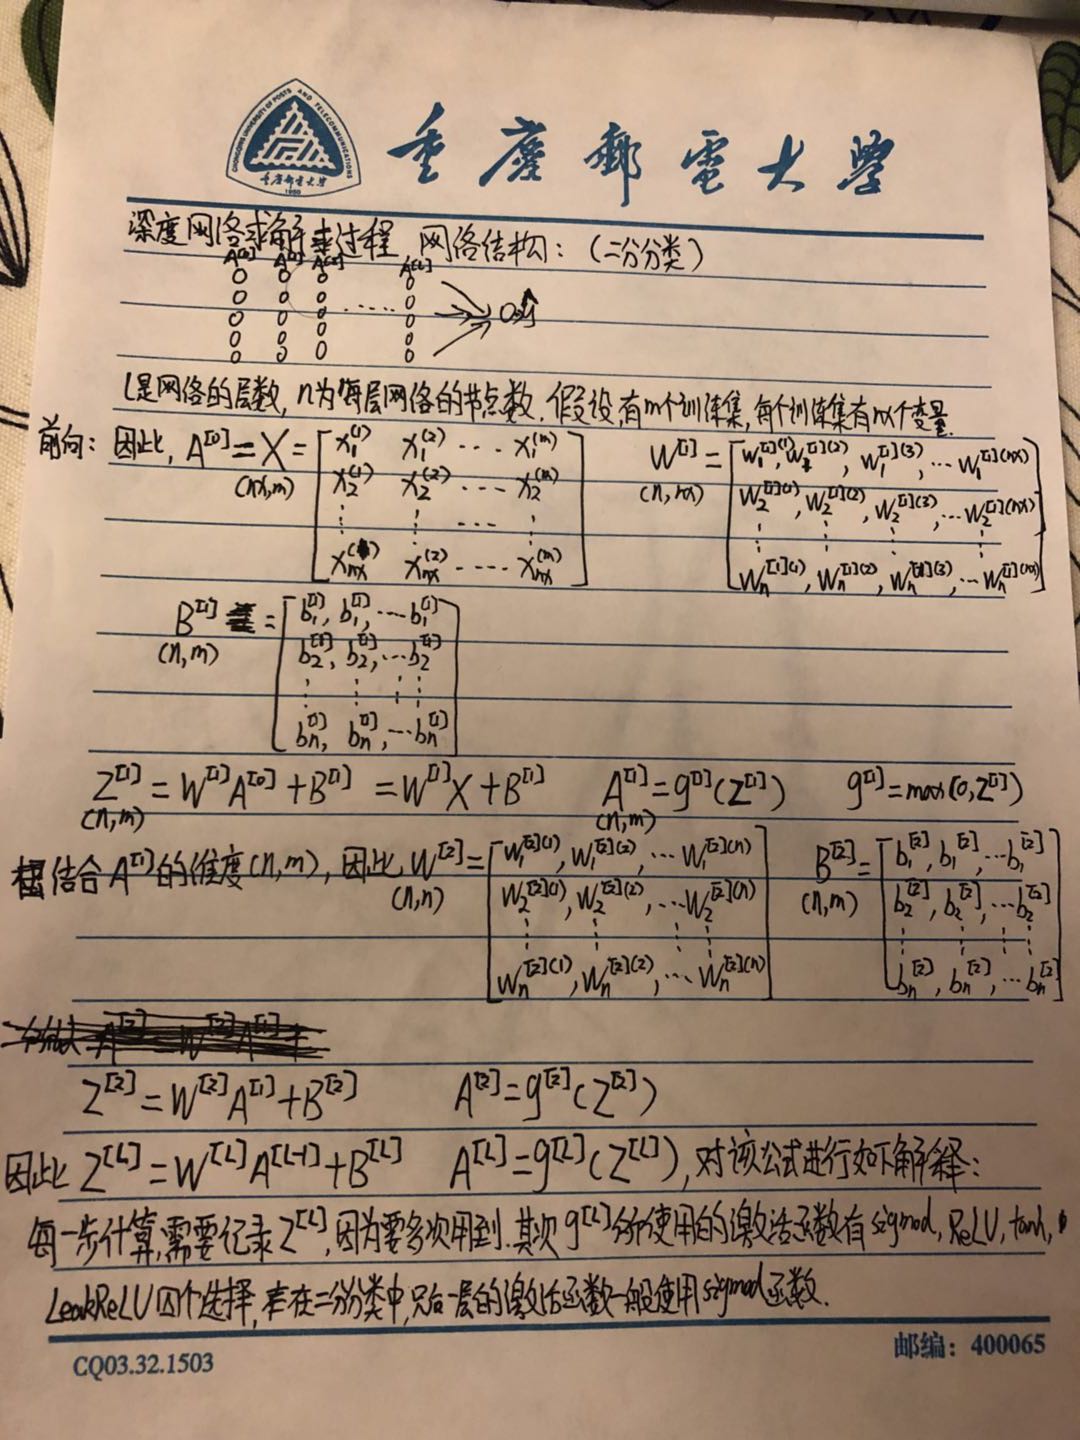 CHONGQING UNIVERSITY OF POSTS AND TELECOMMUNICATIONS
重庆邮电大学
1950
重慶郵電大學
深度网络求解过程 网络结构：（二分分类）
A[0] A[1] A[2] A[L]
.... ŷ
L是网络的层数, n为每层网络的节点数. 假设有m个训练集, 每个训练集有nx个变量.
前向: 因此, A[0] = X = [ x1(1) x1(2) ... x1(m) W[1] = [ w1[1](1), w1[1](2), w1[1](3), ... w1[1](nx)
(nx,m) x2(1) x2(2) ... x2(m) (n,nx) w2[1](1), w2[1](2), w2[1](3), ... w2[1](nx)
xnx(1) xnx(2) .... xnx(m) ] wn[1](1), wn[1](2), wn[1](3), ... wn[1](nx) ]
B[1] = [ b1[1], b1[1], ... b1[1]
(n,m) b2[1], b2[1], ... b2[1]
bn[1], bn[1], ... bn[1] ]
Z[1] = W[1]A[0] + B[1] = W[1]X + B[1] A[1] = g[1](Z[1]) g[1] = max(0, Z[1])
(n,m) (n,m)
结合A[1]的维度(n,m), 因此 W[2] = [ w1[2](1), w1[2](2), ... w1[2](n) B[2] = [ b1[2], b1[2], ... b1[2]
(n,n) w2[2](1), w2[2](2), ... w2[2](n) (n,m) b2[2], b2[2], ... b2[2]
wn[2](1), wn[2](2), ... wn[2](n) ] bn[2], bn[2], ... bn[2] ]
Z[2] = W[2]A[1] + B[2] A[2] = g[2](Z[2])
因此 Z[L] = W[L]A[L-1] + B[L] A[L] = g[L](Z[L]), 对该公式进行如下解释:
每一步计算, 需要记录Z[L], 因为要多次用到. 其次g[L]所使用的激活函数有sigmod, ReLU, tanh,
LeakReLU四个选择, 在二分分类中, 只后一层的激活函数一般使用sigmod函数.
CQ03.32.1503
邮编：400065